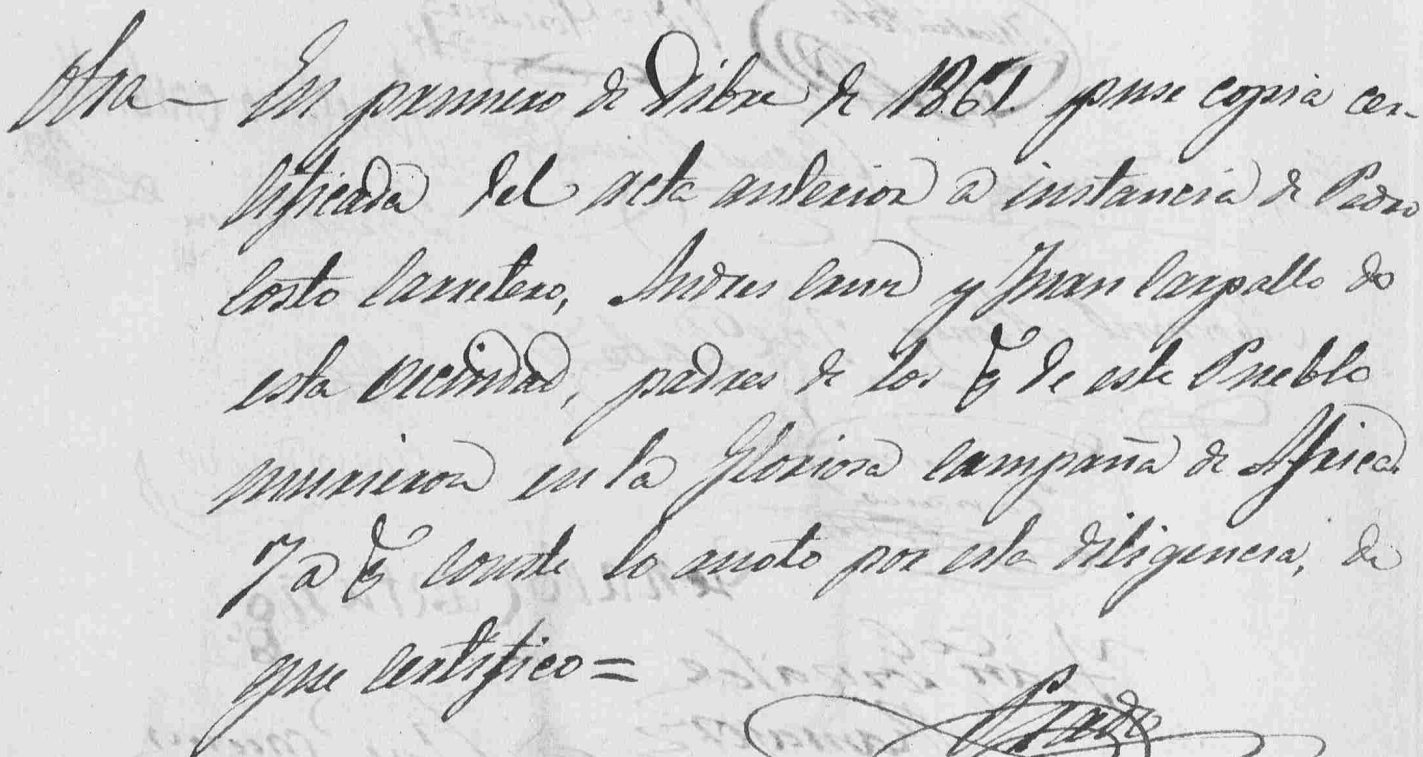 Otra - En primero de Dibre de 1861 puse copia cer-
tificada del acta anterior a instancia de Pedro
Costo Carretero, Andres Cruz y Juan Carpallo de
esta vecindad, padres de los q de este Pueblo
murieron en la Gloriosa campaña de Africa
Y a q conste lo anoto por esta diligencia, de
que certifico =
Prado